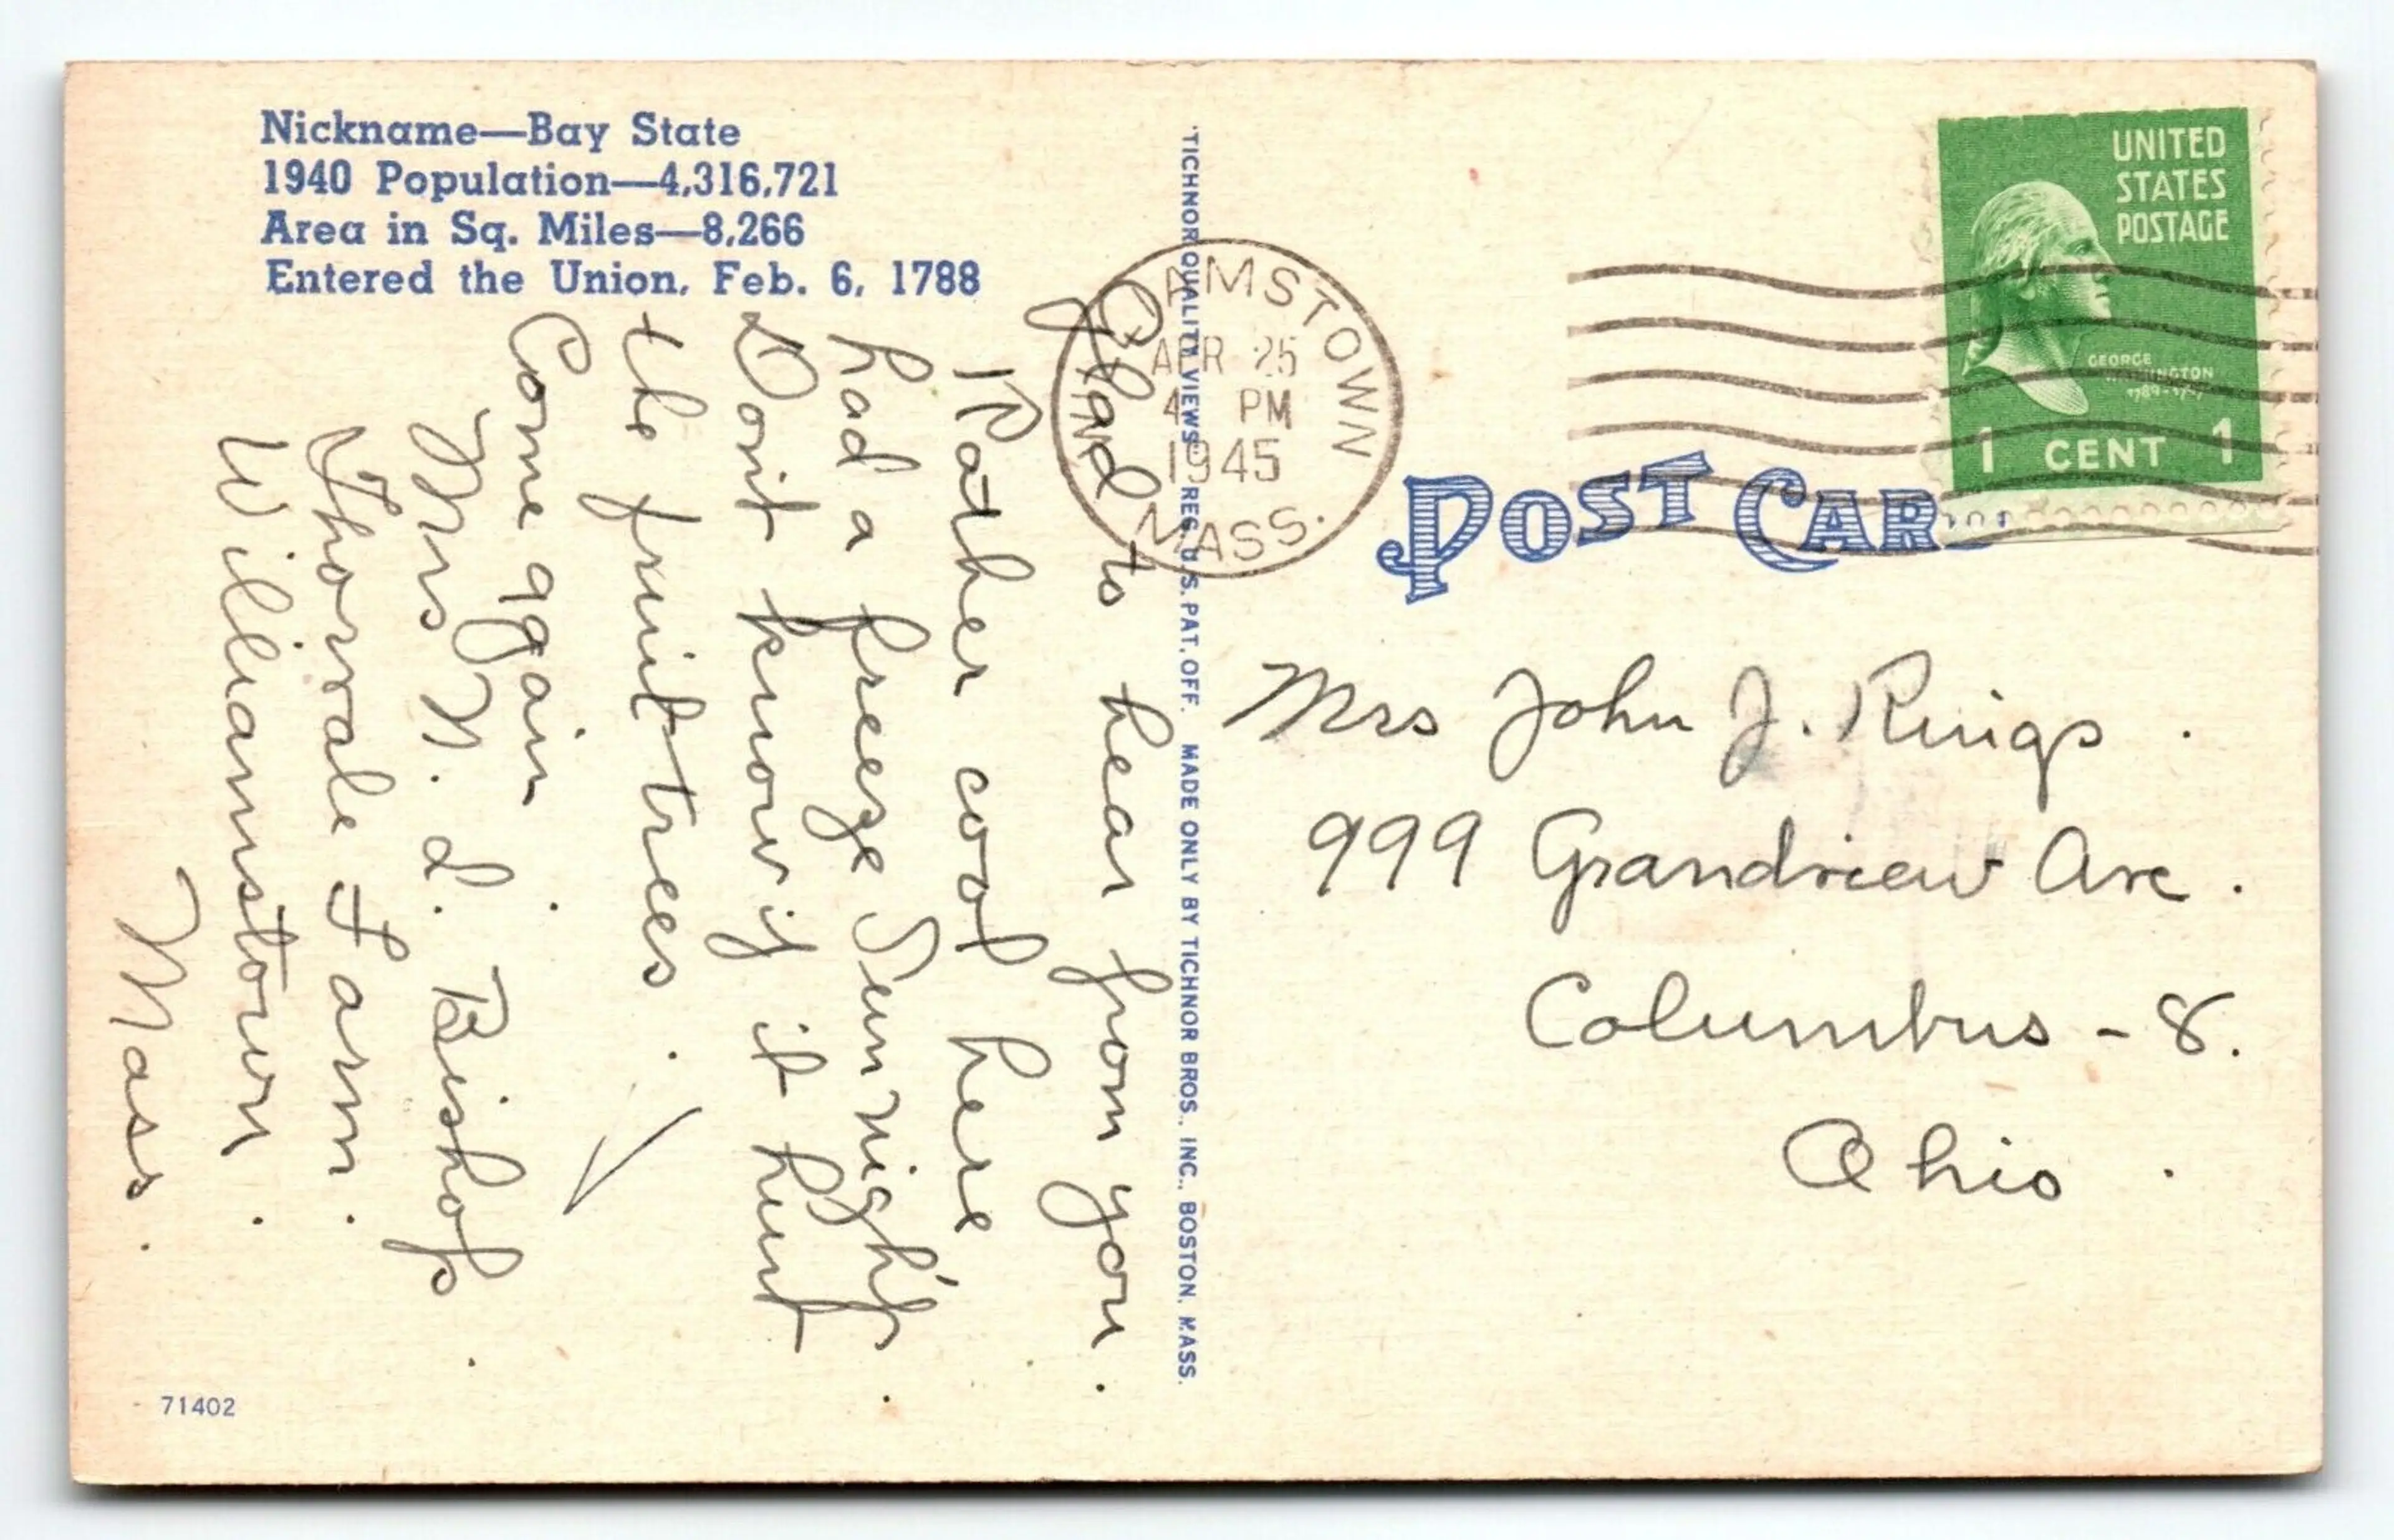 Nickname—Bay State
1940 Population—4,316,721
Area in Sq. Miles—8,266
Entered the Union, Feb. 6, 1788
Glad to hear from you.
Rather cool here
had a freeze Sun night.
Don't know if it hurt
the fruit trees.
Come again
Mrs N. L. Bishop.
Thorvale Farm.
Williamstown.
Mass.
71402
"TICHNOR QUALITY VIEWS" REG. U.S. PAT. OFF. MADE ONLY BY TICHNOR BROS., INC., BOSTON, MASS.
AMSTOWN
APR 25
4 PM
1945
MASS.
UNITED
STATES
POSTAGE
GEORGE
WASHINGTON
1789-1797
1 CENT 1
POST CAR
Mrs John J. Ruigs.
999 Grandview Ave.
Columbus - 8.
Ohio.